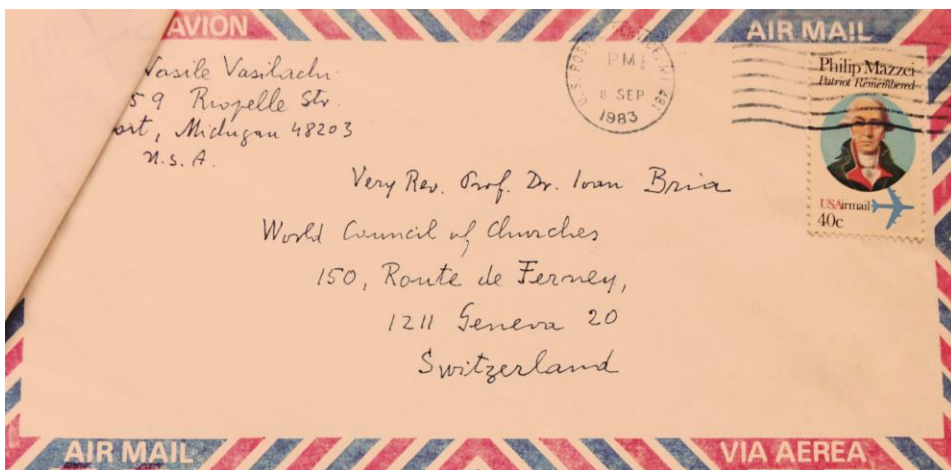 AVION
AIR MAIL
Vasile Vasilachi
59 Riopelle Str.
ort, Michigan 48203
U.S.A.
U.S. POST
MI 481
PM
8 SEP
1983
Philip Mazzei
Patriot Remembered
USAirmail
40c
Very Rev. Prof. Dr. Ioan Bria
World Council of Churches
150, Route de Ferney,
1211 Geneva 20
Switzerland
AIR MAIL
VIA AEREA